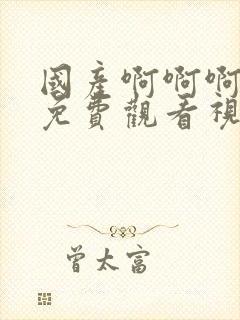 國產啊啊啊
免費觀看視
曾太富